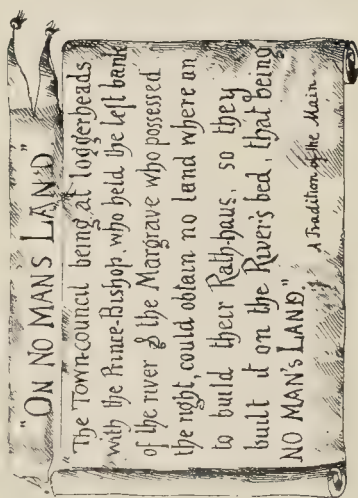 "ON NO MAN'S LAND"
"The Town-council being at loggerheads
with the Prince-Bishop who held the left bank
of the river & the Margrave who possessed
the right, could obtain no land where on
to build their Rath-haus, so they
built it on the River's bed, that being
NO MAN'S LAND".
A Tradition of the Main.